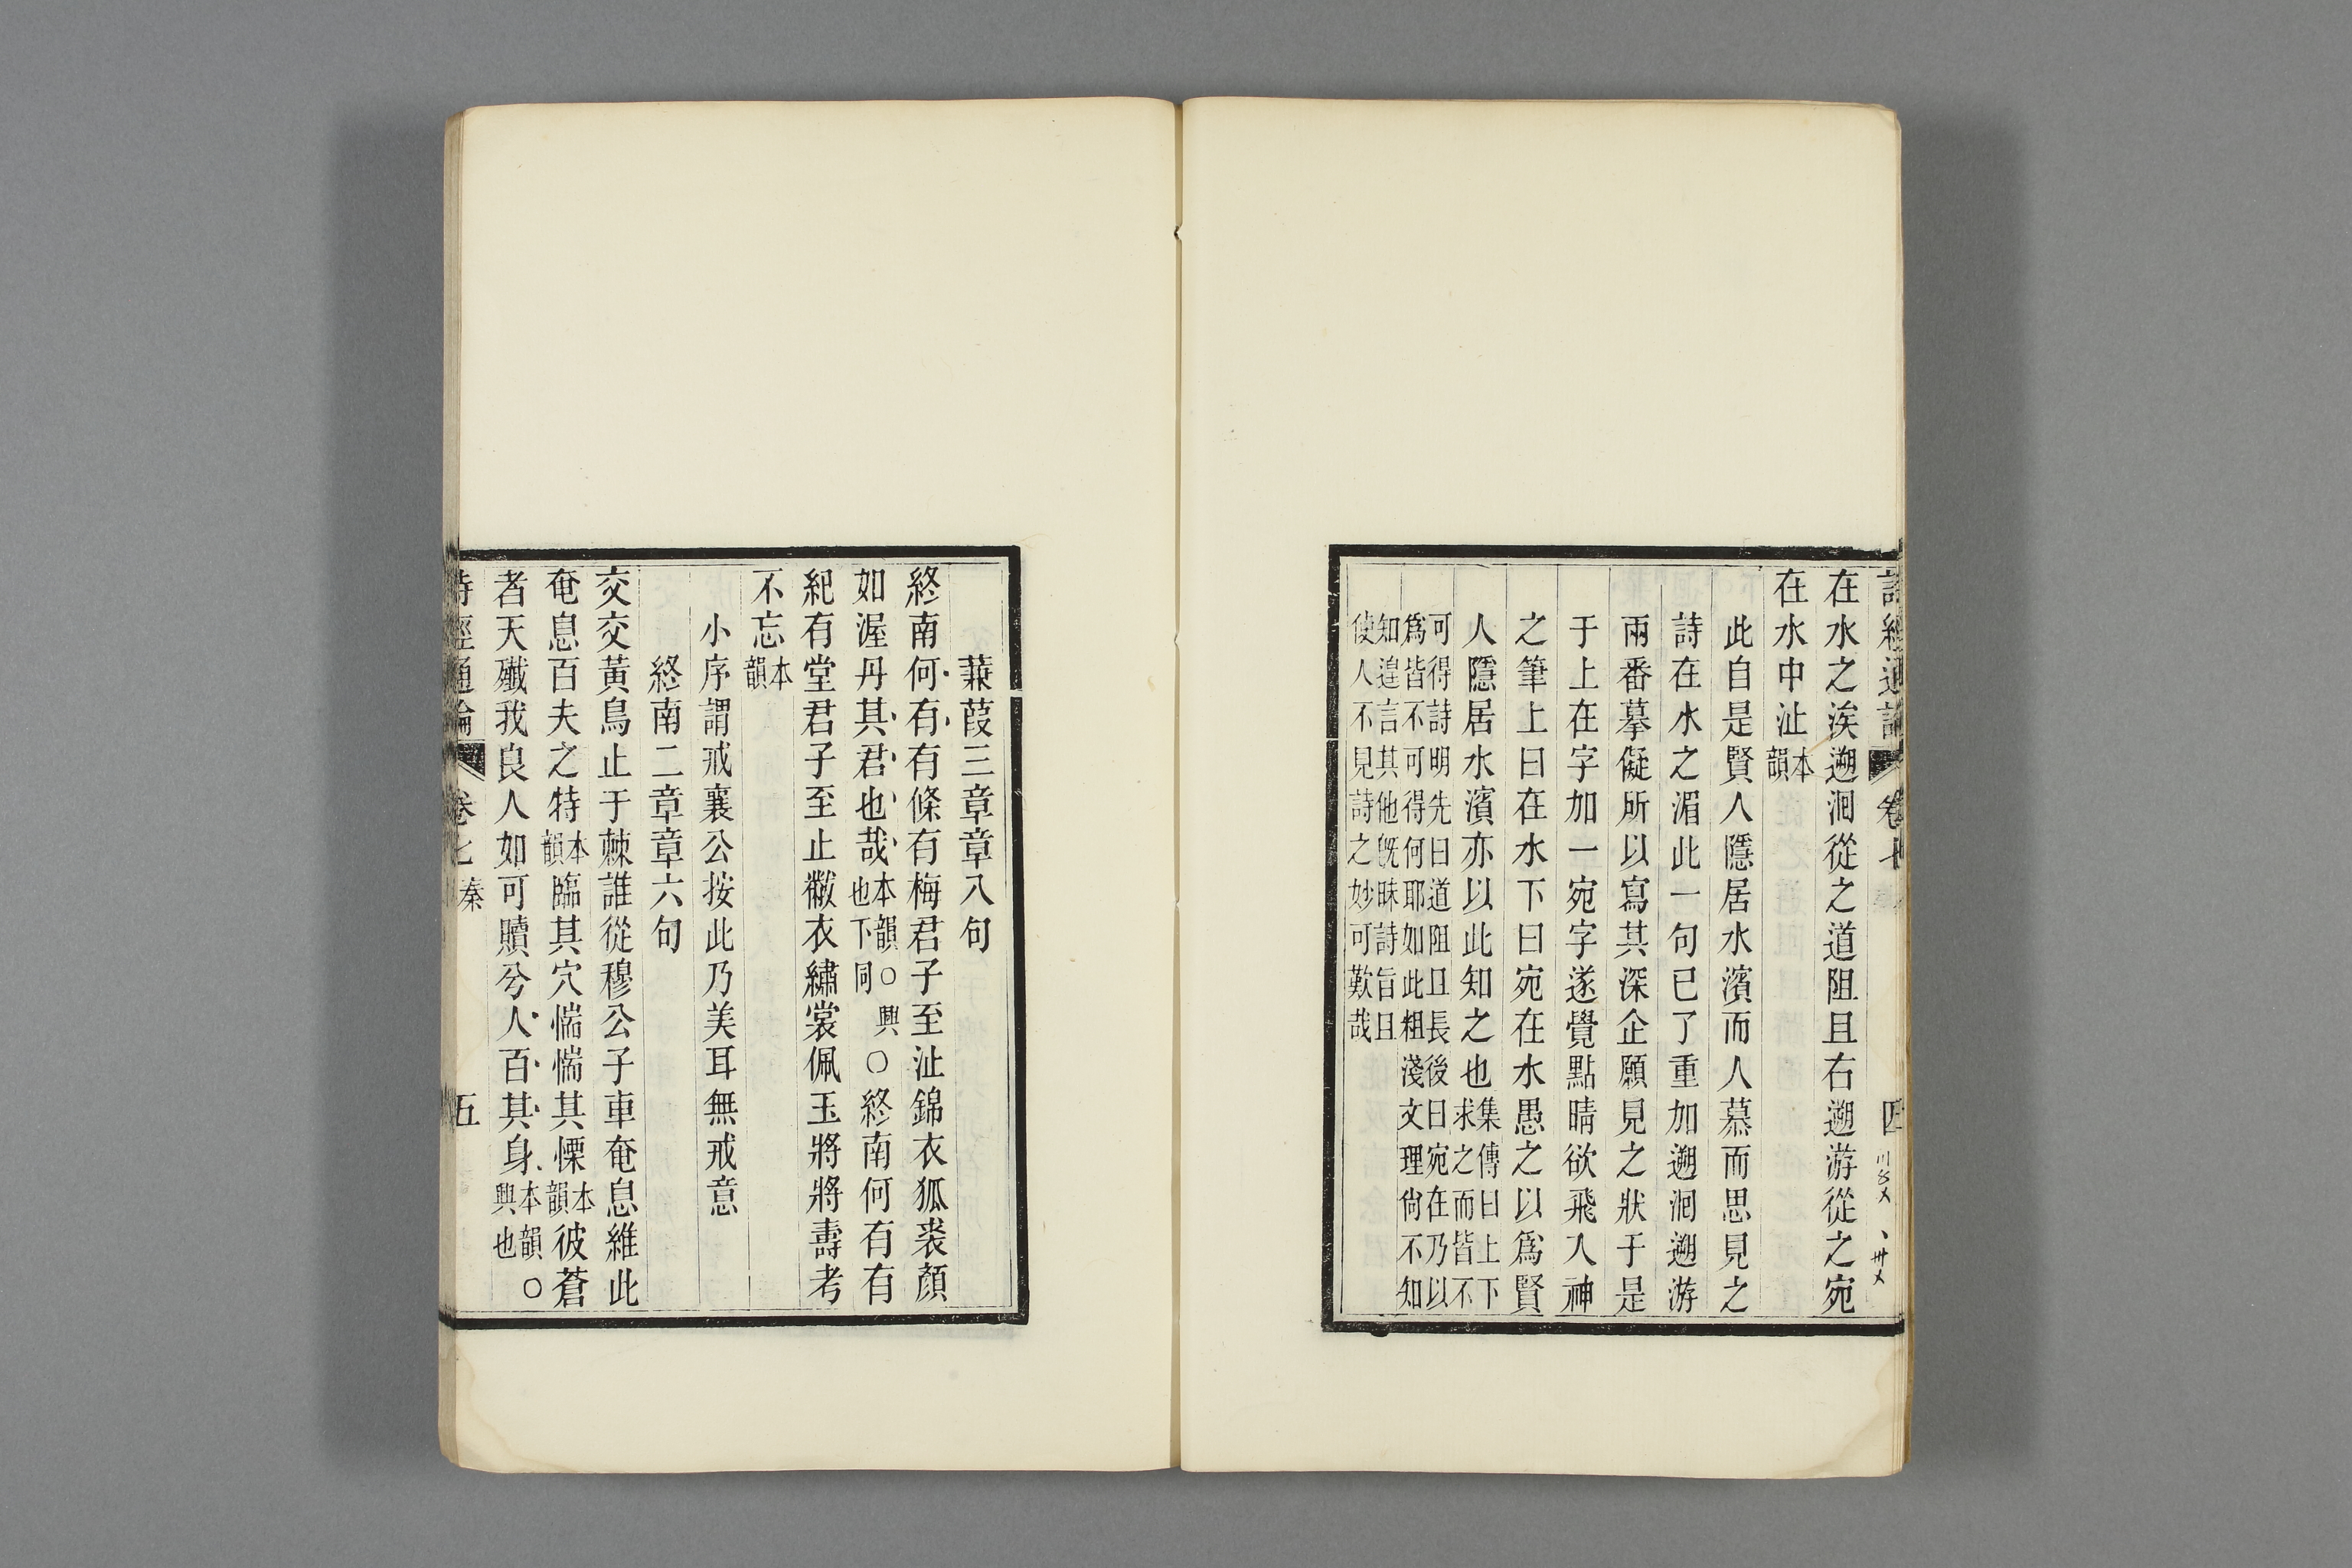 詩經通論 卷七 四
在水之涘遡洄從之道阻且右遡游從之宛
在水中沚本韻
此自是賢人隱居水濱而人慕而思見之
詩在水之湄此一句已了重加遡洄遡游
兩番摹儗所以寫其深企願見之狀于是
于上在字加一宛字遂覺點晴欲飛入神
之筆上曰在水下曰宛在水愚之以爲賢
人隱居水濱亦以此知之也集傳曰上下求之而皆不
可得詩明先曰道阻且長後曰宛在乃以
爲皆不可得何耶如此粗淺文理尙不知
知遑言其他旣昧詩旨且
使人不見詩之妙可歎哉
蒹葭三章章八句
終南何有有條有梅君子至沚錦衣狐裘顏
如渥丹其君也哉本韻○興也下同○終南何有有
紀有堂君子至止黻衣繡裳佩玉將將壽考
不忘本韻
小序謂戒襄公按此乃美耳無戒意
終南二章章六句
交交黃鳥止于棘誰從穆公子車奄息維此
奄息百夫之特本韻臨其穴惴惴其慄本韻彼蒼
者天殲我良人如可贖兮人百其身本韻興也○
詩經通論 卷七 秦 五